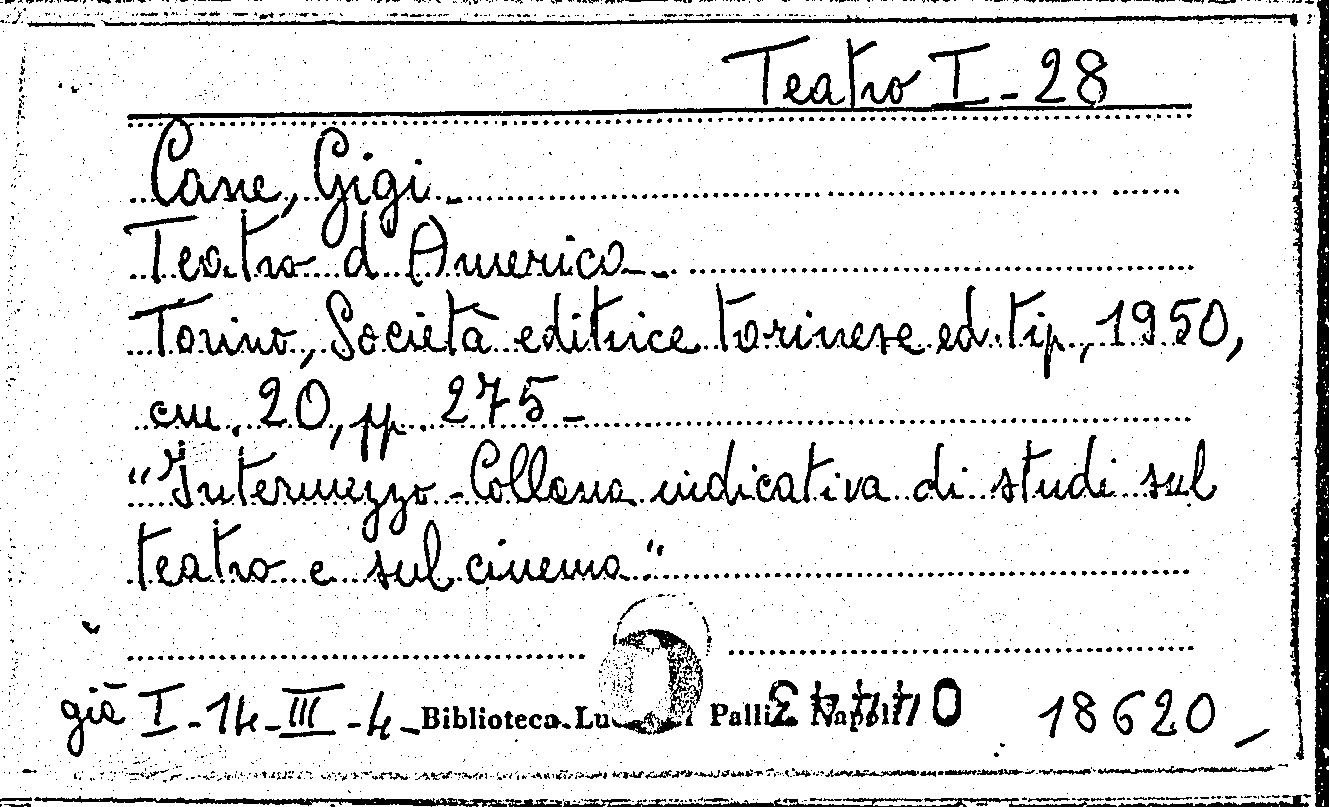 Teatro I - 28
Cane, Gigi -
Teatro d'America -
Torino, Società editrice torinese ed. tip., 1950,
cm. 20, pp. 275 -
"Intermezzo - Collana indicativa di studi sul
teatro e sul cinema"
già I - 14 - III - 4 - Biblioteca Napoli 18620 -